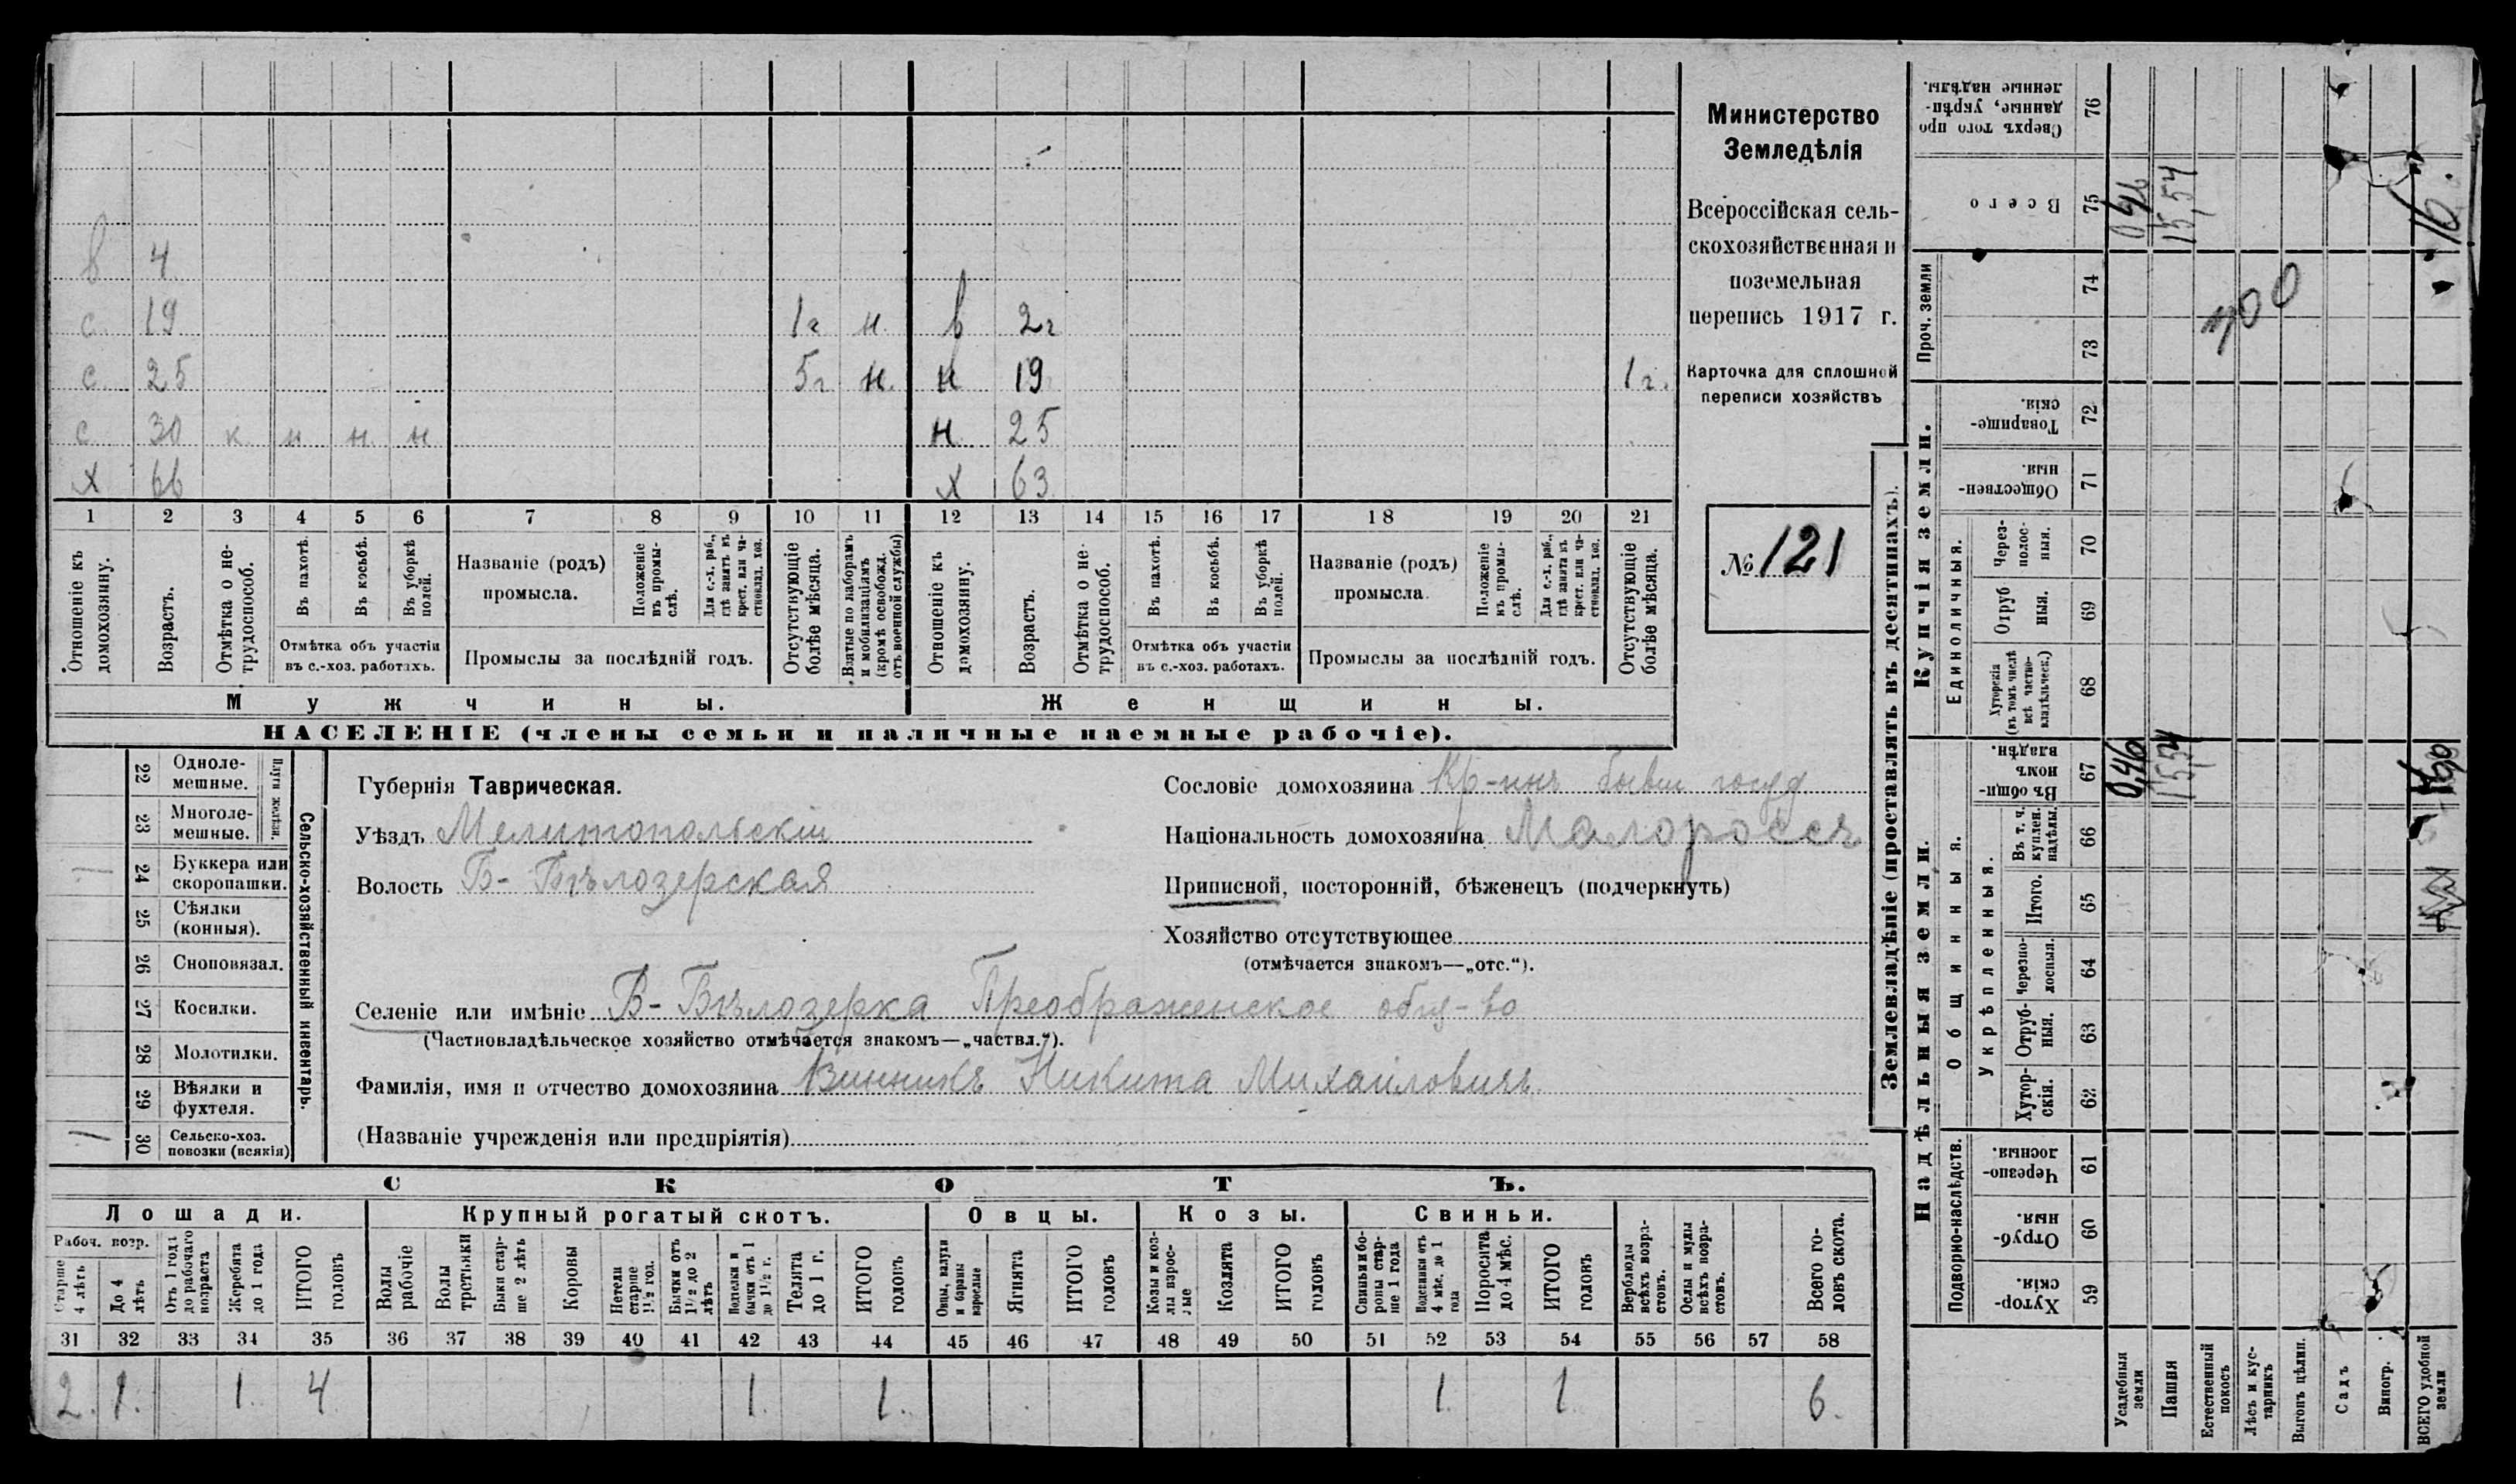 в 4
с 19 1 г н в 2 г
с 25 5 г н н 19 1 г.
с 30 к н н н н 25
х 66 х 63
1 2 3 4 5 6 7 8 9 10 11 12 13 14 15 16 17 18 19 20 21
Отношеніе къ домохозяину.
Возрастъ.
Отмѣтка о не-трудоспособ.
Въ пахотѣ.
Въ косьбѣ.
Въ уборкѣ полей.
Отмѣтка объ участіи
въ с.-хоз. работахъ.
Названіе (родъ)
промысла.
Положеніе въ промы-слѣ.
Для с.-х. раб., гдѣ занятъ въ крест. или ча-стновлад. хоз.
Промыслы за послѣдній годъ.
Отсутствующіе болѣе мѣсяца.
Взятые по наборамъ и мобилизаціямъ (кромѣ освобожд. отъ военной службы)
Отношеніе къ домохозяину.
Возрастъ.
Отмѣтка о не-трудоспособ.
Въ пахотѣ.
Въ косьбѣ.
Въ уборкѣ полей.
Отмѣтка объ участіи
въ с.-хоз. работахъ.
Названіе (родъ)
промысла.
Положеніе въ промы-слѣ.
Для с.-х. раб., гдѣ занята въ крест. или ча-стновлад. хоз.
Промыслы за послѣдній годъ.
Отсутствующіе болѣе мѣсяца.
Мужчины.
Женщины.
НАСЕЛЕНІЕ (члены семьи и наличные наемные рабочіе).
Министерство
Земледѣлія
Всероссійская сель-
скохозяйственная и
поземельная
перепись 1917 г.
Карточка для сплошной
переписи хозяйствъ
№ 121
22 Одноле-мешные.
23 Многоле-мешные.
Плуги желѣзн.
24 Буккера или скоропашки.
25 Сѣялки (конныя).
26 Сноповязал.
27 Косилки.
28 Молотилки.
29 Вѣялки и фухтеля.
30 Сельско-хоз. повозки (всякія)
Сельско-хозяйственный инвентарь.
Губернія Таврическая.
Уѣздъ Мелитопольскій
Волость Б- Бѣлозерская
Сословіе домохозяина Кр-инъ бывш госуд
Національность домохозяина Малороссъ
Приписной, посторонній, бѣженецъ (подчеркнуть)
Хозяйство отсутствующее
(отмѣчается знакомъ—„отс.“).
Селеніе или имѣніе В- Бѣлозерка Преображенское общ-во
(Частновладѣльческое хозяйство отмѣчается знакомъ—„частвл.“).
Фамилія, имя и отчество домохозяина Винникъ Никита Михайловичъ
(Названіе учрежденія или предпріятія)
СКОТЪ.
Лошади. Крупный рогатый скотъ. Овцы. Козы. Свиньи.
Рабоч. возр.
Старше 4 лѣтъ
До 4 лѣтъ
Отъ 1 года до рабочаго возраста
Жеребята до 1 года
ИТОГО головъ
Волы рабочіе
Волы третьяки
Быки стар-ше 2 лѣтъ
Коровы
Нетели старше 1½ год.
Бычки отъ 1½ до 2 лѣтъ
Бычки отъ 1 до 1½ г.
Телята до 1 г.
ИТОГО головъ
Овцы, валухи и бараны взрослые
Ягнята
ИТОГО головъ
Козы и коз-лы взрос-лые
Козлята
ИТОГО головъ
Свиньи и бо-ровы стар-ше 1 года
Подсвинки отъ 4 мѣс. до 1 года
Поросята до 4 мѣс.
ИТОГО головъ
Верблюды всѣхъ возра-стовъ.
Ослы и мулы всѣхъ возра-стовъ.
Всего го-ловъ скота.
31 32 33 34 35 36 37 38 39 40 41 42 43 44 45 46 47 48 49 50 51 52 53 54 55 56 57 58
2. 1. 1. 4 1. 1. 1. 1. 6.
Землевладѣніе (проставлять въ десятинахъ).
Надѣльныя земли.
Купчія земли.
Проч. земли
Подворно-наслѣдств.
Общинныя.
Укрѣпленныя.
Единоличныя.
Хутор-скія. 59
Отруб-ныя. 60
Черезпо-лосныя. 61
Хутор-скія. 62
Отруб-ныя. 63
Черезпо-лосныя. 64
Итого. 65
Въ т. ч. куплен. надѣлы. 66
Въ общи-номъ владѣн. 67
Хуторскія (въ томъ числѣ всѣ частно-владѣльческ.) 68
Отруб ныя. 69
Через-полос-ныя. 70
Обществен-ныя. 71
Товарище-скія. 72
73
74
Всего 75
Сверхъ того про данные, укрѣп-ленные надѣлы. 76
Усадебныя земли 0,46 0,46
Пашня 15,54 15,54
Естественный покосъ
Лѣсъ и кус-тарникъ
Выгонъ цѣлин.
Садъ
Виногр.
ВСЕГО удобной земли 16.